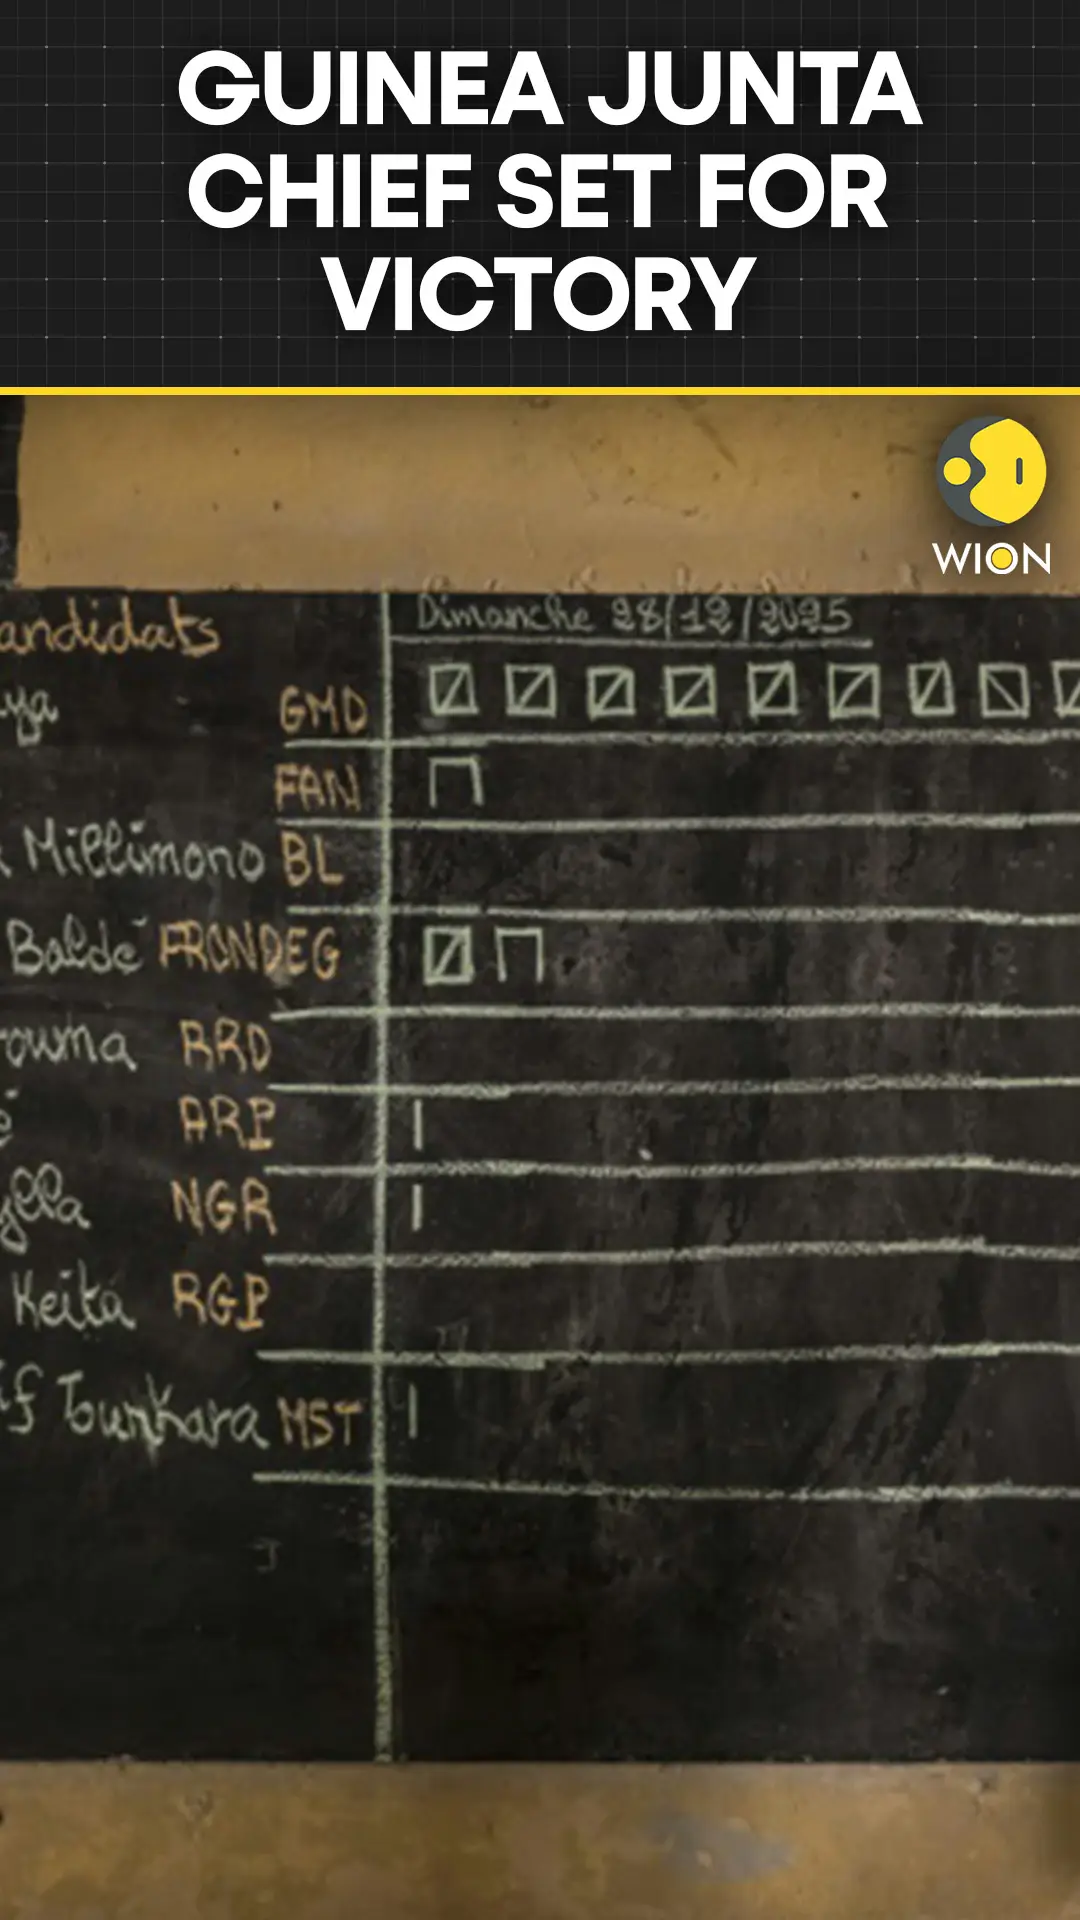 GUINEA JUNTA
CHIEF SET FOR
VICTORY
WION
andidats
Dimanche 28/12/2025
ya GMD
FAN
Millimono BL
Baldé FRONDEG
rouma RRD
ARP
ylla NGR
Keita RGP
if Tounkara MST